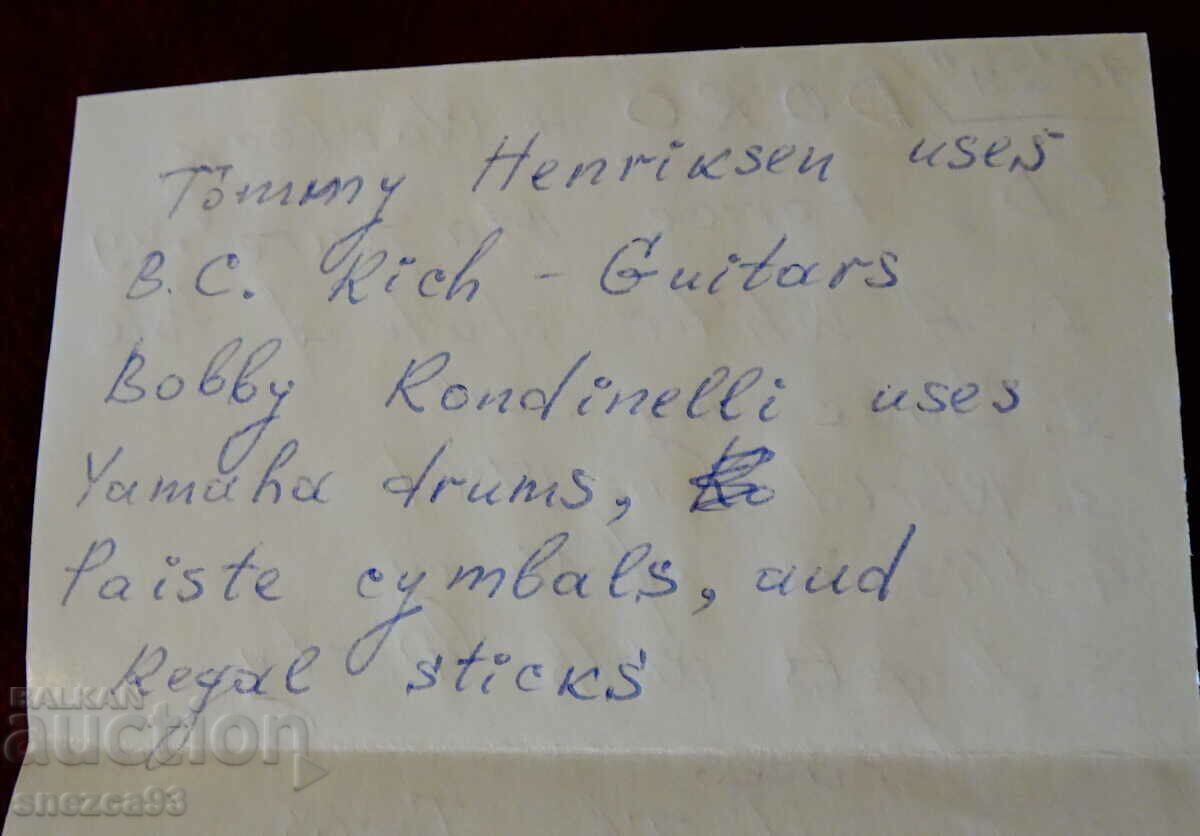 Tommy Henriksen uses
B.C. Rich - Guitars
Bobby Rondinelli uses
Yamaha drums,
Paiste cymbals, and
Regal sticks
BALKAN
auction
snezca93